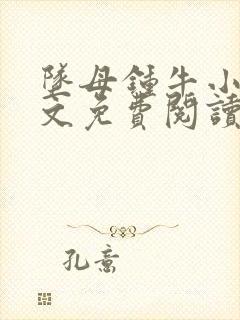 墜母鍾牛小
文免費閱讀
孔意